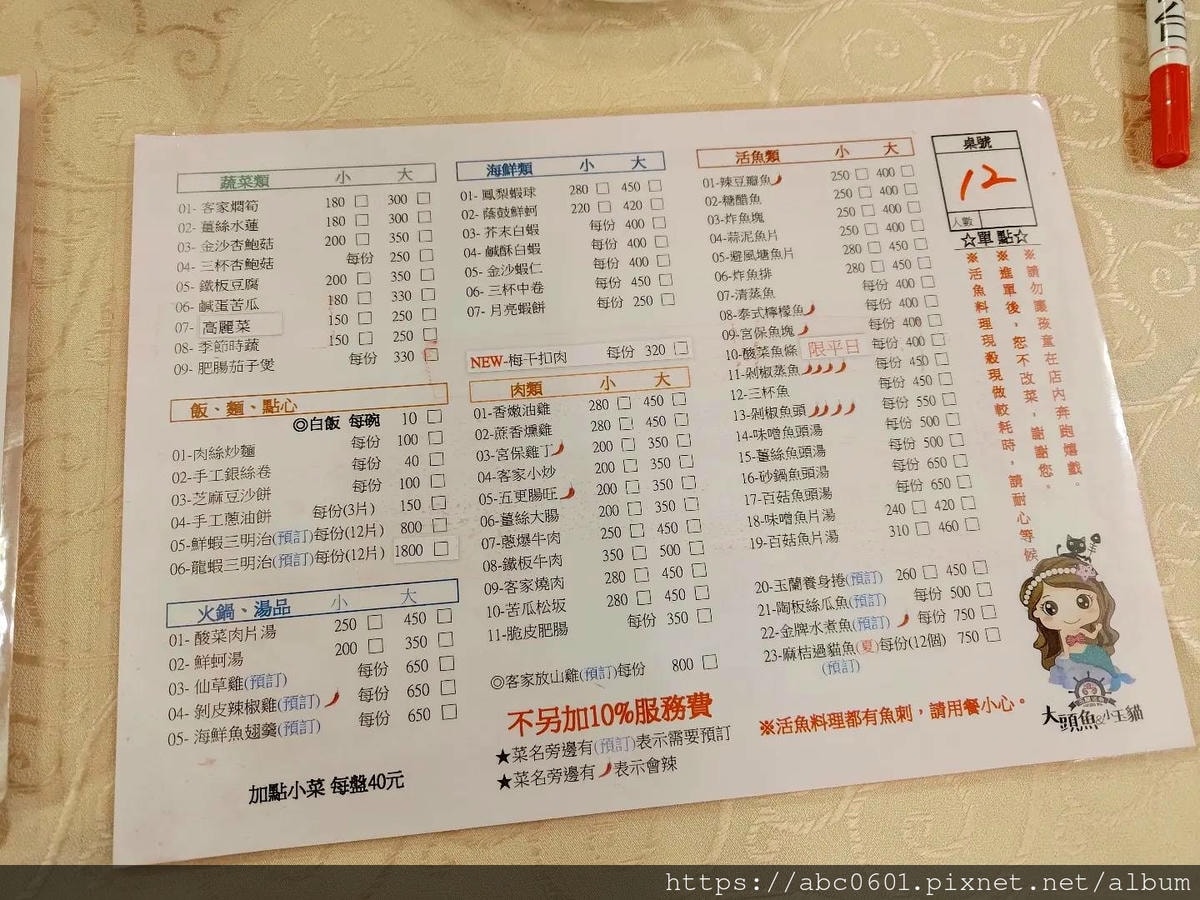 蔬菜類 小 大
01- 客家燜筍 180 □ 300 □
02- 薑絲水蓮 180 □ 300 □
03- 金沙杏鮑菇 200 □ 350 □
04- 三杯杏鮑菇 每份 250 □
05- 鐵板豆腐 200 □ 350 □
06- 鹹蛋苦瓜 180 □ 330 □
07- 高麗菜 150 □ 250 □
08- 季節時蔬 150 □ 250 □
09- 肥腸茄子煲 每份 330 □
飯、麵、點心
◎白飯 每碗 10 □
01-肉絲炒麵 每份 100 □
02-手工銀絲卷 每份 40 □
03-芝麻豆沙餅 每份 100 □
04-手工蔥油餅 每份(3片) 150 □
05-鮮蝦三明治(預訂)每份(12片) 800 □
06-龍蝦三明治(預訂)每份(12片) 1800 □
火鍋、湯品 小 大
01- 酸菜肉片湯 250 □ 450 □
02- 鮮蚵湯 200 □ 350 □
03- 仙草雞(預訂) 每份 650 □
04- 剝皮辣椒雞(預訂) 每份 650 □
05- 海鮮魚翅羹(預訂) 每份 650 □
加點小菜 每盤40元
海鮮類 小 大
01- 鳳梨蝦球 280 □ 450 □
02- 蔭鼓鮮蚵 220 □ 420 □
03- 芥末白蝦 每份 400 □
04- 鹹酥白蝦 每份 400 □
05- 金沙蝦仁 每份 400 □
06- 三杯中卷 每份 450 □
07- 月亮蝦餅 每份 250 □
NEW-梅干扣肉 每份 320 □
肉類 小 大
01-香嫩油雞 280 □ 450 □
02-蔗香燻雞 280 □ 450 □
03-宮保雞丁 200 □ 350 □
04-客家小炒 200 □ 350 □
05-五更腸旺 200 □ 350 □
06-薑絲大腸 200 □ 350 □
07-蔥爆牛肉 250 □ 450 □
08-鐵板牛肉 350 □ 500 □
09-客家燒肉 280 □ 450 □
10-苦瓜松坂 280 □ 450 □
11-脆皮肥腸 每份 350 □
◎客家放山雞(預訂)每份 800 □
不另加10%服務費
★菜名旁邊有(預訂)表示需要預訂
★菜名旁邊有 表示會辣
活魚類 小 大
01-辣豆瓣魚 250 □ 400 □
02-糖醋魚 250 □ 400 □
03-炸魚塊 250 □ 400 □
04-蒜泥魚片 250 □ 400 □
05-避風塘魚片 280 □ 450 □
06-炸魚排 280 □ 450 □
07-清蒸魚 每份 400 □
08-泰式檸檬魚 每份 400 □
09-宮保魚塊 每份 400 □
10-酸菜魚條 限平日 每份 400 □
11-剁椒蒸魚 每份 450 □
12-三杯魚 每份 450 □
13-剁椒魚頭 每份 550 □
14-味噌魚頭湯 每份 500 □
15-薑絲魚頭湯 每份 500 □
16-砂鍋魚頭湯 每份 650 □
17-百菇魚頭湯 每份 650 □
18-味噌魚片湯 240 □ 420 □
19-百菇魚片湯 310 □ 460 □
20-玉蘭養身捲(預訂) 260 □ 450 □
21-陶板絲瓜魚(預訂) 每份 500 □
22-金牌水煮魚(預訂) 每份 750 □
23-麻桔過貓魚(夏)每份(12個) 750 □
(預訂)
※活魚料理都有魚刺，請用餐小心。
桌號
12
人數
☆單點☆
※請勿讓孩童在店內奔跑嬉戲。
※進單後，您不改菜，謝謝您。
※活魚料理現殺現做較耗時，請耐心等候
大頭魚&小玉貓
https://abc0601.pixnet.net/album